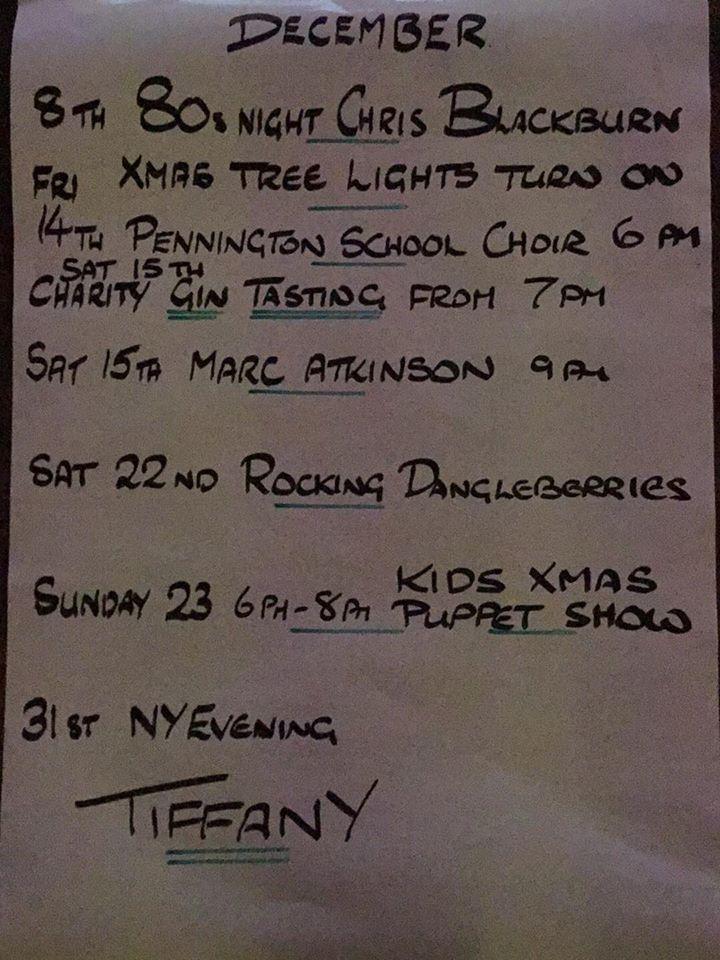 DECEMBER
8TH 80s NIGHT CHRIS BLACKBURN
FRI XMAS TREE LIGHTS TURN ON
14TH PENNINGTON SCHOOL CHOIR 6PM
SAT 15TH
CHARITY GIN TASTING FROM 7PM
SAT 15TH MARC ATKINSON 9PM
SAT 22ND ROCKING DANGLEBERRIES
KIDS XMAS
SUNDAY 23 6PM-8PM PUPPET SHOW
31ST NYEVENING
TIFFANY